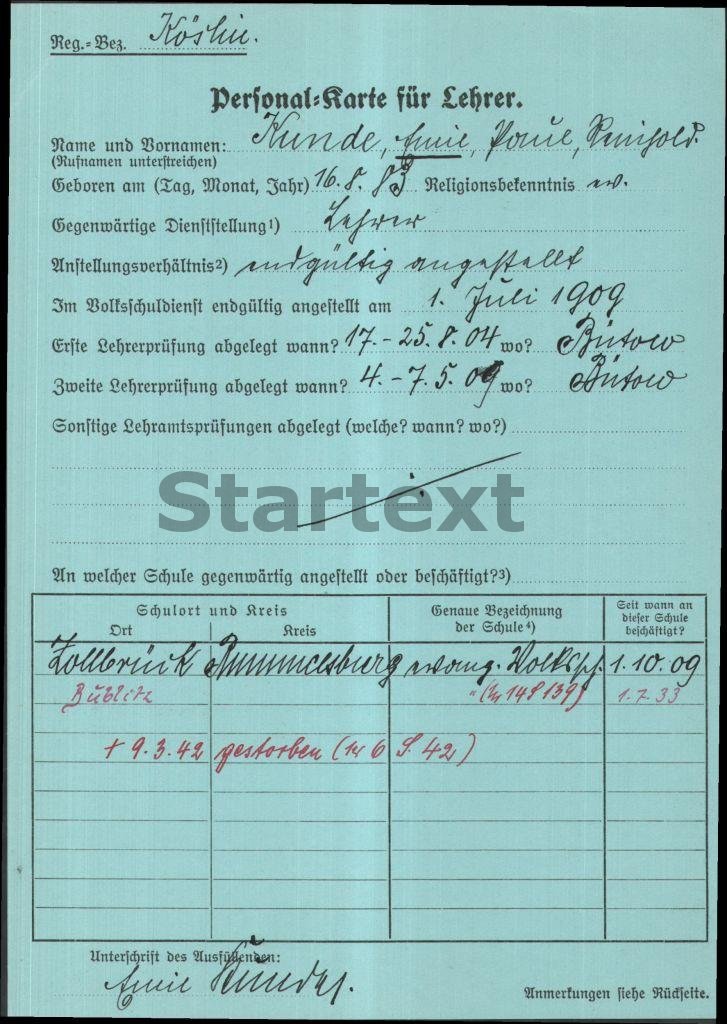 Reg.-Bez. Köslin.
Personal-Karte für Lehrer.
Name und Vornamen: Kunde, Emil, Paul, Reinhold.
(Rufnamen unterstreichen)
Geboren am (Tag, Monat, Jahr) 16. 8. 83 Religionsbekenntnis ev.
Gegenwärtige Dienststellung1) Lehrer
Anstellungsverhältnis2) endgültig angestellt
Im Volksschuldienst endgültig angestellt am 1. Juli 1909
Erste Lehrerprüfung abgelegt wann? 17.-25.8.04 wo? Bütow
Zweite Lehrerprüfung abgelegt wann? 4.-7.5.09 wo? Bütow
Sonstige Lehramtsprüfungen abgelegt (welche? wann? wo?)
Startext
An welcher Schule gegenwärtig angestellt oder beschäftigt?3)
Schulort und Kreis Genaue Bezeichnung der Schule4) Seit wann an dieser Schule beschäftigt?
Ort Kreis
Zollbrück Rummelsburg evang. Volkssch. 1.10.09
Bublitz " ( 148 139) 1.7.33
+ 9.3.42 gestorben ( 6 S. 42)
Unterschrift des Ausfüllenden:
Emil Kunde.
Anmerkungen siehe Rückseite.